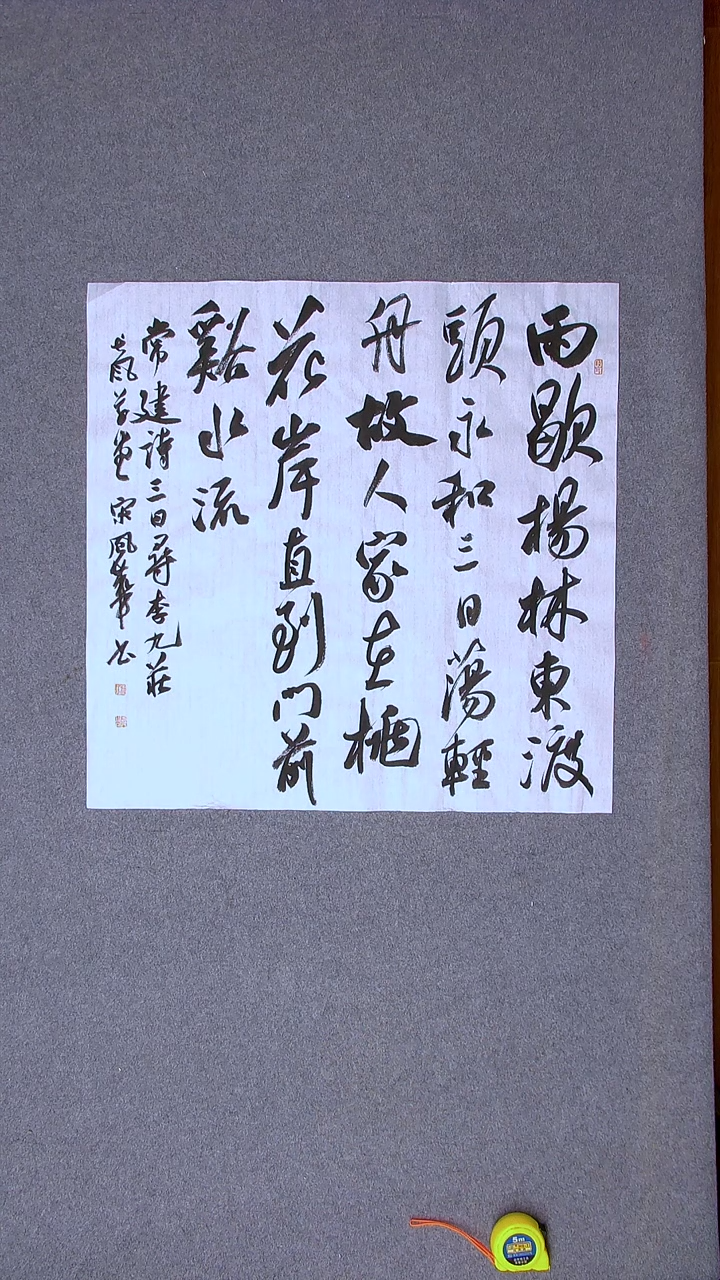 雨歇楊林東渡
頭永和三日蕩輕
舟故人家在桃
花岸直到門前
谿水流
常建詩三日尋李九莊
宋風華书
5m